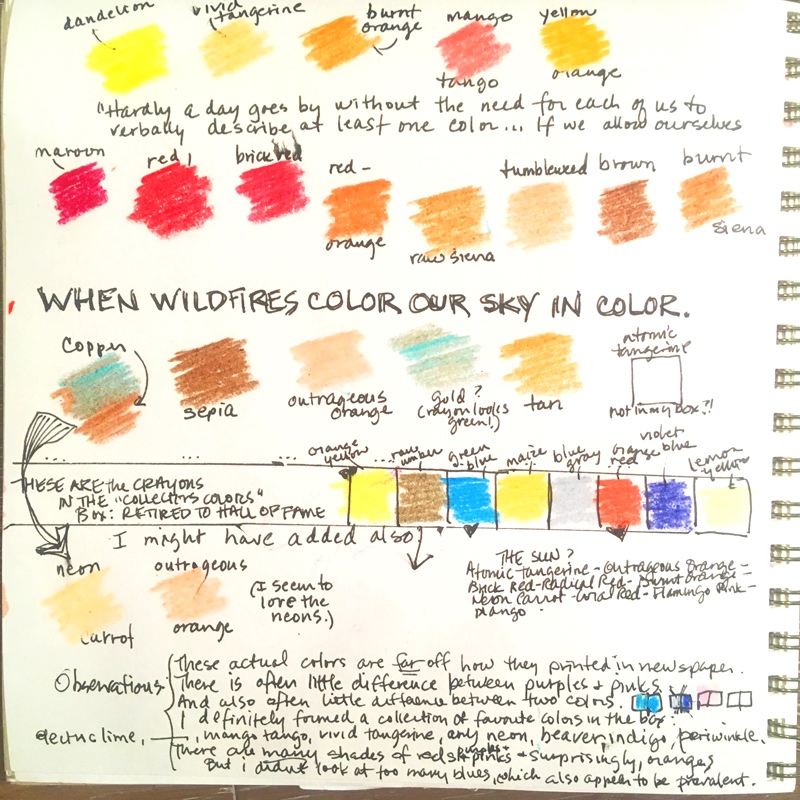 dandelion vivid tangerine burnt orange mango tango yellow orange
"Hardly a day goes by without the need for each of us to
verbally describe at least one color... If we allow ourselves
maroon red brick red red-orange raw siena tumbleweed brown burnt siena
WHEN WILDFIRES COLOR OUR SKY IN COLOR.
Copper
sepia
outrageous
orange
gold?
(crayon looks
green!)
tan
atomic
tangerine
not in my box?!
... ... ...
orange yellow
raw umber
green blue
maize
blue gray
orange red
violet blue
lemon yellow
THESE ARE the CRAYONS
IN THE "COLLECTORS COLORS"
BOX: RETIRED TO HALL OF FAME
I might have added also:
neon
carrot
outrageous
orange
(I seem to
love the
neons.)
THE SUN?
Atomic Tangerine - Outrageous Orange -
Brick Red - Radical Red - Burnt Orange -
Neon Carrot - Red - Flamingo Pink -
Mango
Observations:
These actual colors are far off how they printed in newspaper.
There is often little difference between purples + pinks.
And also often little difference between two colors.
I definitely formed a collection of favorite colors in the box:
electric lime, mango tango, vivid tangerine, any neon, beaver, indigo, periwinkle.
There are many shades of reds + pinks + purples + surprisingly, oranges
But I didn't look at too many blues, which also appear to be prevalent.